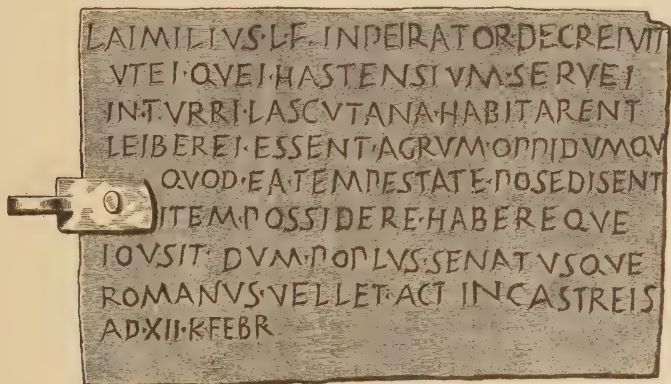 L·AIMILIVS·L·F·INPEIRATOR·DECREIVIT
VTEI·QVEI·HASTENSIVM·SERVEI
IN·TVRRI·LASCVTANA·HABITARENT
LEIBEREI·ESSENT·AGRVM·OPPIDVMQV
QVOD·EA·TEMPESTATE·POSEDISENT
ITEM·POSSIDERE·HABEREQVE
IOVSIT·DVM·POPLVS·SENATVSQVE
ROMANVS·VELLET·ACT·IN·CASTREIS
AD·XII·K·FEBR